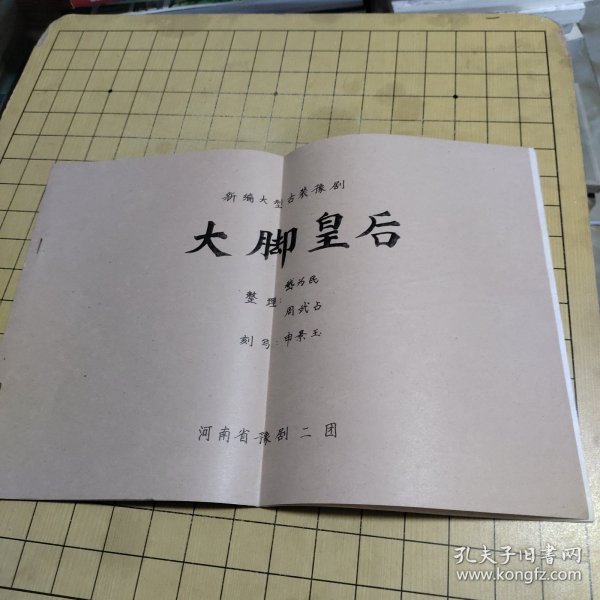 新编大型古装豫剧
大脚皇后
整理:樊为民
周武占
刻写:申景玉
河南省豫剧二团
孔夫子旧书网
www.kongfz.com